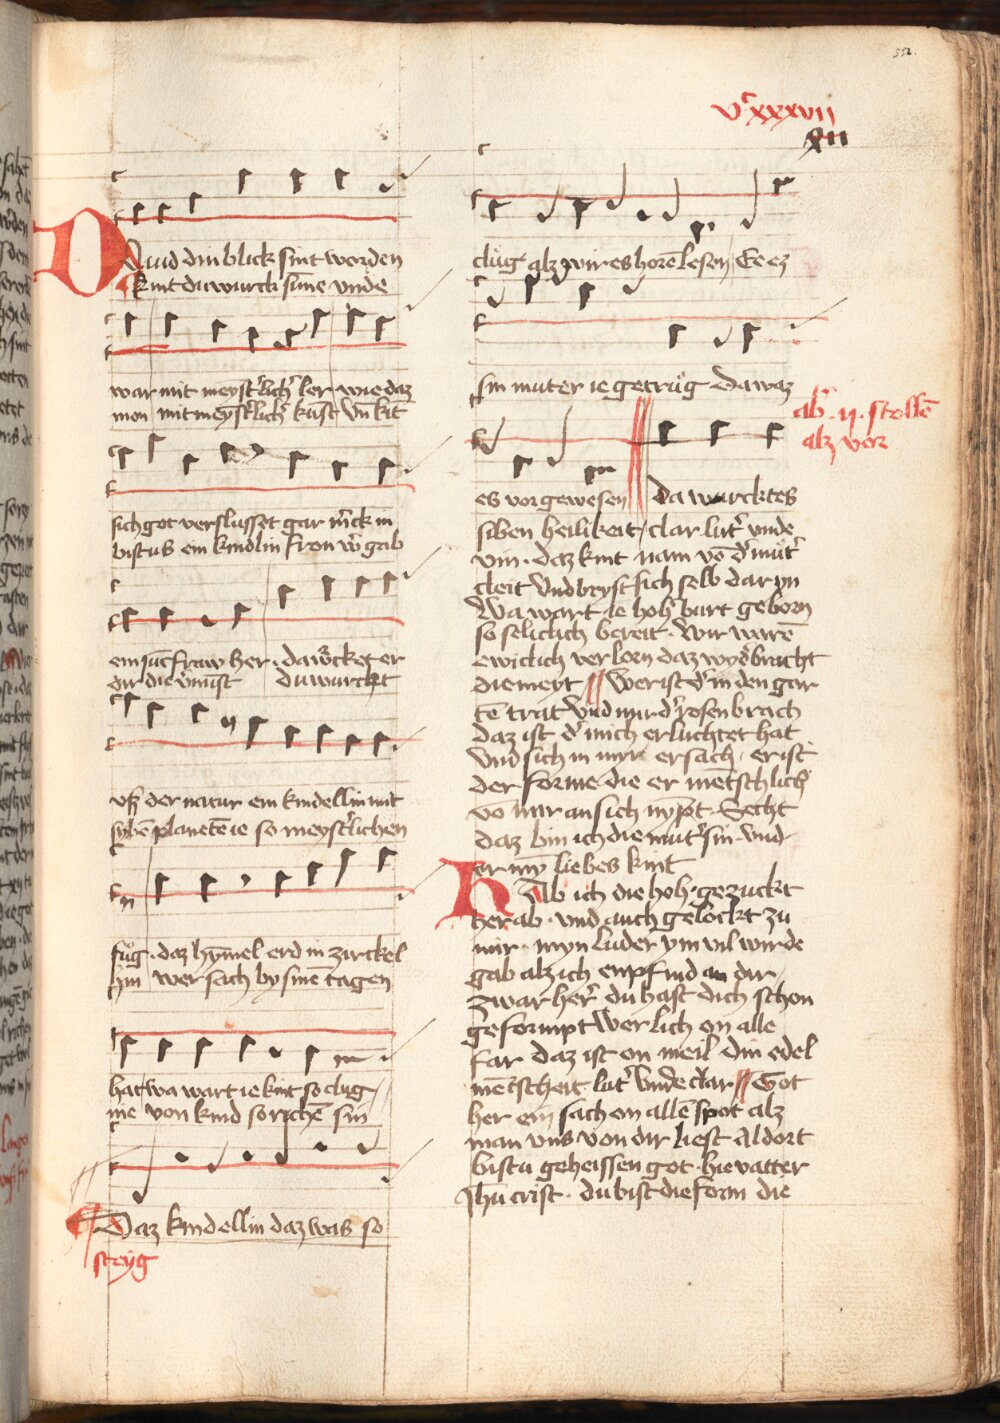 552.
Vᶜxxxvii
xii
Auid din blick sint worden
kint du wurck sūne vnde
war mit meystʼlichʼ ler wie daz
mon mit meystʼlichʼ kūst vn kit
sich got verslusset gar
bistus ein kindlin fron gab
ein jūcfraw her · er
dir die vʼnūst du wurckt
vſz der natur ein kindellin mit
sybē planetē ie so meystʼlichen
fuͤg · daz hȳmel erd in zirckel
hin wer sach by sinē tagen
hat wa wart ie kint so clug
nie von kind so richē sin
Daz kindellin daz was so
steyg
clůg alz wir es horē lesen Ee ez
sin muter ie getrůg Da waz
ab · ii · stollē
alz vor
es vor gewesen Da wurcktes
siben heilikeit / clar lutʼ vnde
vin · daz kint nam vō dʼ mutʼ
cleit Vnd bryst sich selb dar yn
Wa wart ie hohʼ burt geborn
so seliclich bereit · Wir warē
ewiclich verlorn daz wydʼbracht
die meyt Wer ist dʼ in den gar
tē trat Vnd mir dʼ rosen brach
daz ist dʼ mich erluchtet hat
Vnd sich in myr ersach / er ist
der forme die er metschlichʼ
vō mir an sich nȳpt · Secht
daz bin ich die mutʼ sin vnd
er mȳ liebes kint
Hab ich die hohʼ gezuckt
her ab · vnd auch gelockt zu
mir · myn luder ym vil wirde
gab alz ich enpfind an dir
Zwar herʼ du hast dich schon
geformpt Werlich on alle
far daz ist on meil din edel
mētscheit lutʼ vnde clar Got
her ein sach on allē spot alz
man vns von dir liest Aldort
bistu geheissen got · hie vatter
Jhū crist · du bist die form die